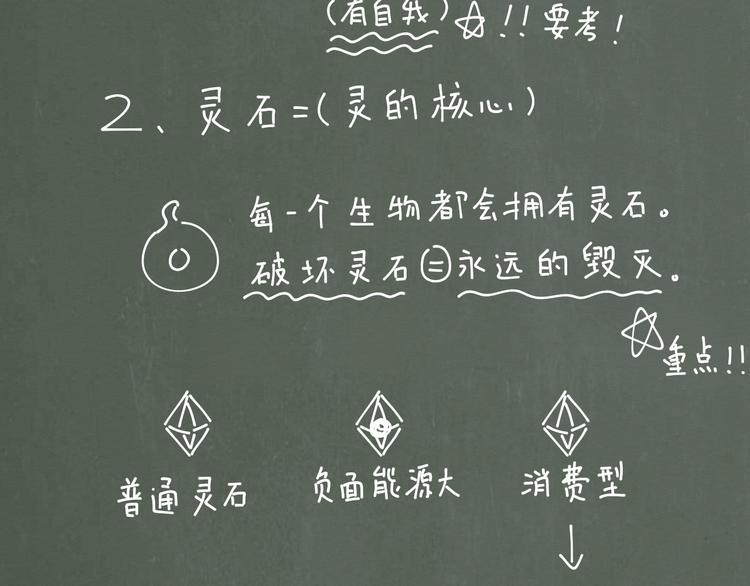 （有自我）☆!!要考!
2、灵石=(灵的核心)
每一个生物都会拥有灵石。
破坏灵石=永远的毁灭。
☆重点!!
普通灵石 负面能源大 消费型